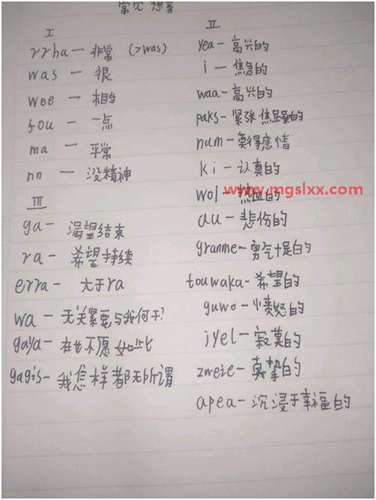 常见想音
I
rrha — 非常 (>was)
was — 很
wee — 相当
fou — 一点
ma — 平常
nn — 没精神
III
ga — 渴望结束
ra — 希望持续
erra — 大于ra
wa — 无关紧要与我何干?
gaya — 在也不愿如此
gagis — 我怎样都无所谓
II
yea — 高兴的
i — 焦急的
waa — 高兴的
paks — 紧张焦显的
num — 莫得感情
ki — 认真的
wol — 热血的
au — 悲伤的
granme — 勇气十足的
touwaka — 希望的
guwo — 愤怒的
jyel — 寂寞的
zweie — 真挚的
apea — 沉浸于幸福的
www.mgslxx.com